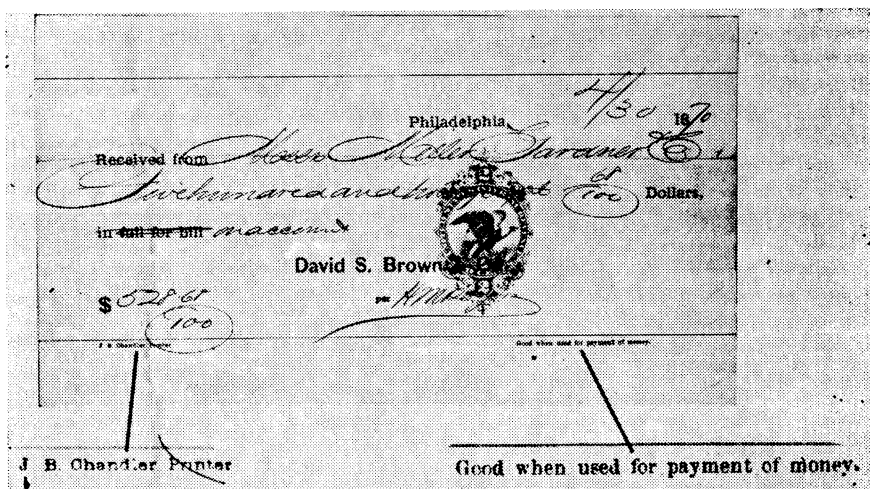 4/30
Philadelphia, 1870
Received from Gardner & Co
Five hundred and 68/100 Dollars,
in full for bill on account
David S. Brown
$ 528 68/100
per
J B Chandler Printer
Good when used for payment of money.
J B. Chandler Printer
Good when used for payment of money.